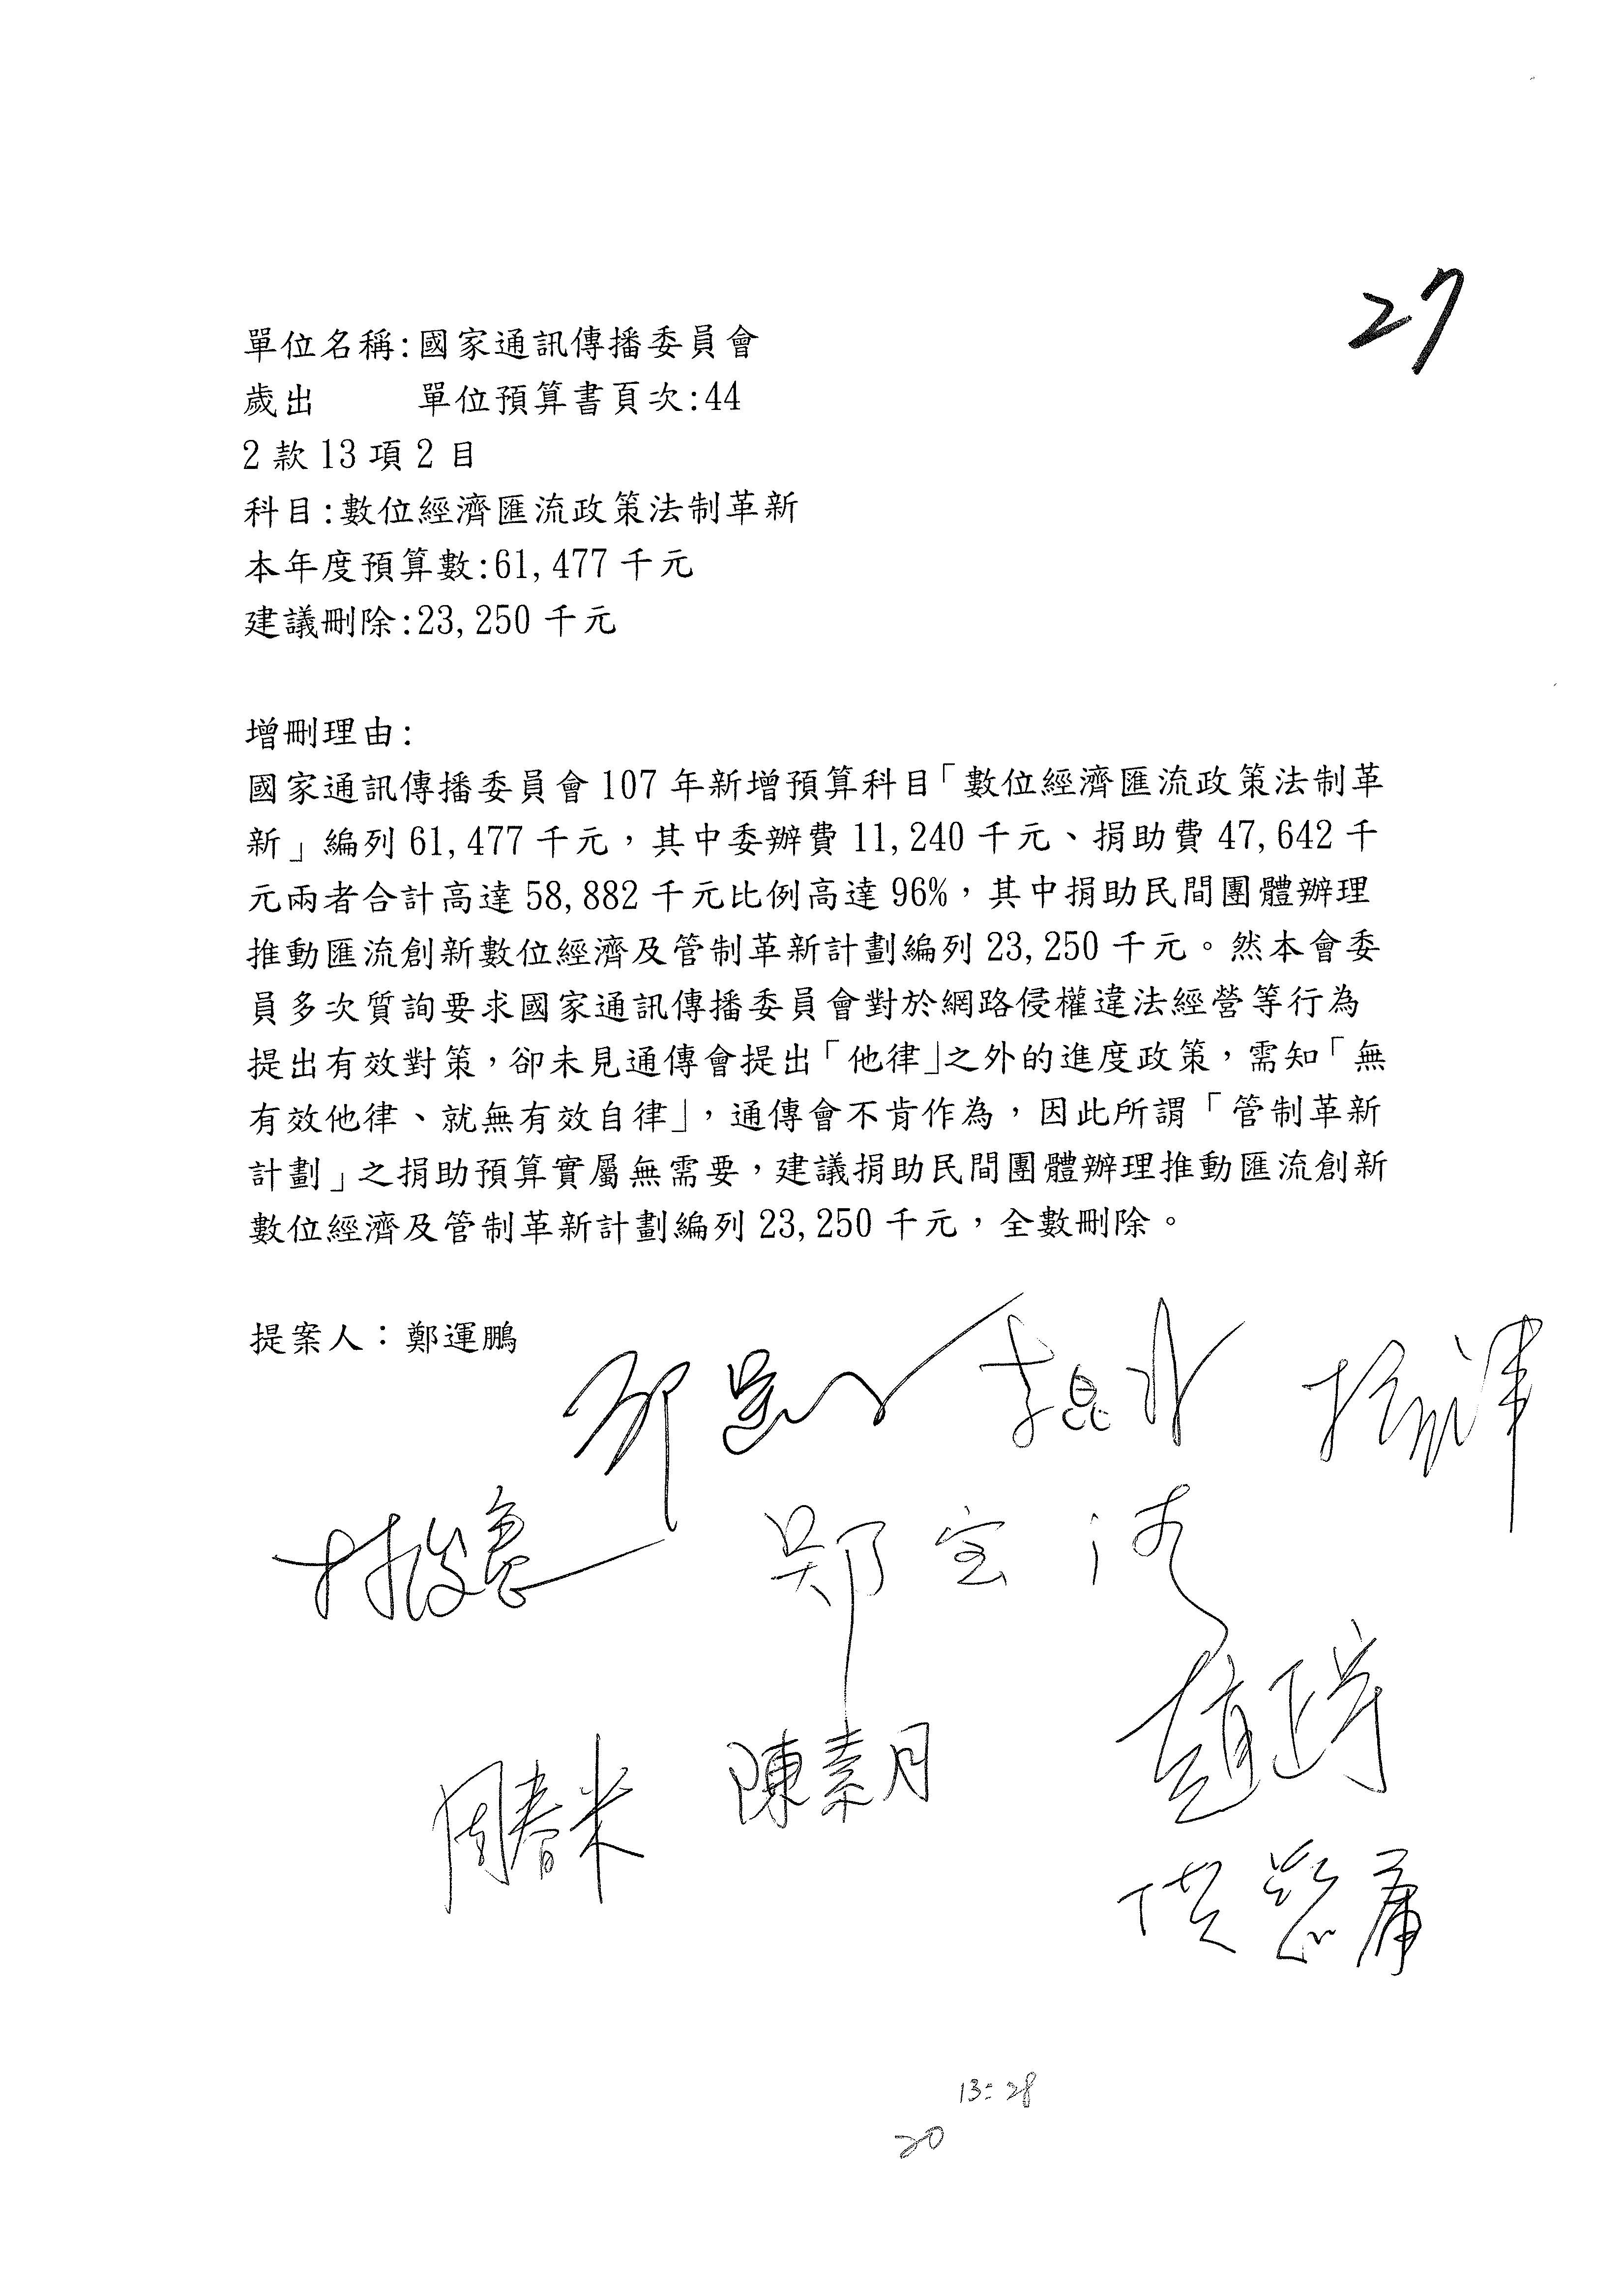 27
單位名稱:國家通訊傳播委員會
歲出 單位預算書頁次:44
2 款 13 項 2 目
科目:數位經濟匯流政策法制革新
本年度預算數:61,477 千元
建議刪除:23,250 千元
增刪理由:
國家通訊傳播委員會 107 年新增預算科目「數位經濟匯流政策法制革
新」編列 61,477 千元,其中委辦費 11,240 千元、捐助費 47,642 千
元兩者合計高達 58,882 千元比例高達 96%,其中捐助民間團體辦理
推動匯流創新數位經濟及管制革新計劃編列 23,250 千元。然本會委
員多次質詢要求國家通訊傳播委員會對於網路侵權違法經營等行為
提出有效對策,卻未見通傳會提出「他律」之外的進度政策,需知「無
有效他律、就無有效自律」,通傳會不肯作為,因此所謂「管制革新
計劃」之捐助預算實屬無需要,建議捐助民間團體辦理推動匯流創新
數位經濟及管制革新計劃編列 23,250 千元,全數刪除。
提案人:鄭運鵬
李昆
林俊憲 鄭宝清
趙正宇
周春米 陳素月
洪慈庸
13:28
20